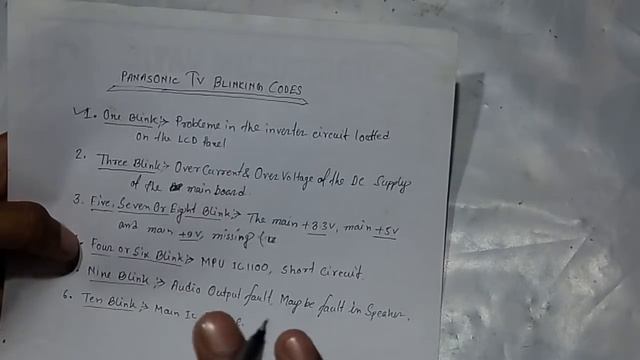 PANASONIC TV BLINKING CODES
1. One Blink:→ Probleme in the inverter circuit located
on the LCD Panel
2. Three Blink:→ Over Current & Over Voltage of the DC Supply
of the main board.
3. Five, Seven Or Eight Blink:→ The main +3.3V, main +5V
and main +9V, missing (
Four or Six Blink:→ MPU IC1100, Short Circuit.
Nine Blink:→ Audio Output fault. May be fault in Speaker.
6. Ten Blink:→ Main Ic